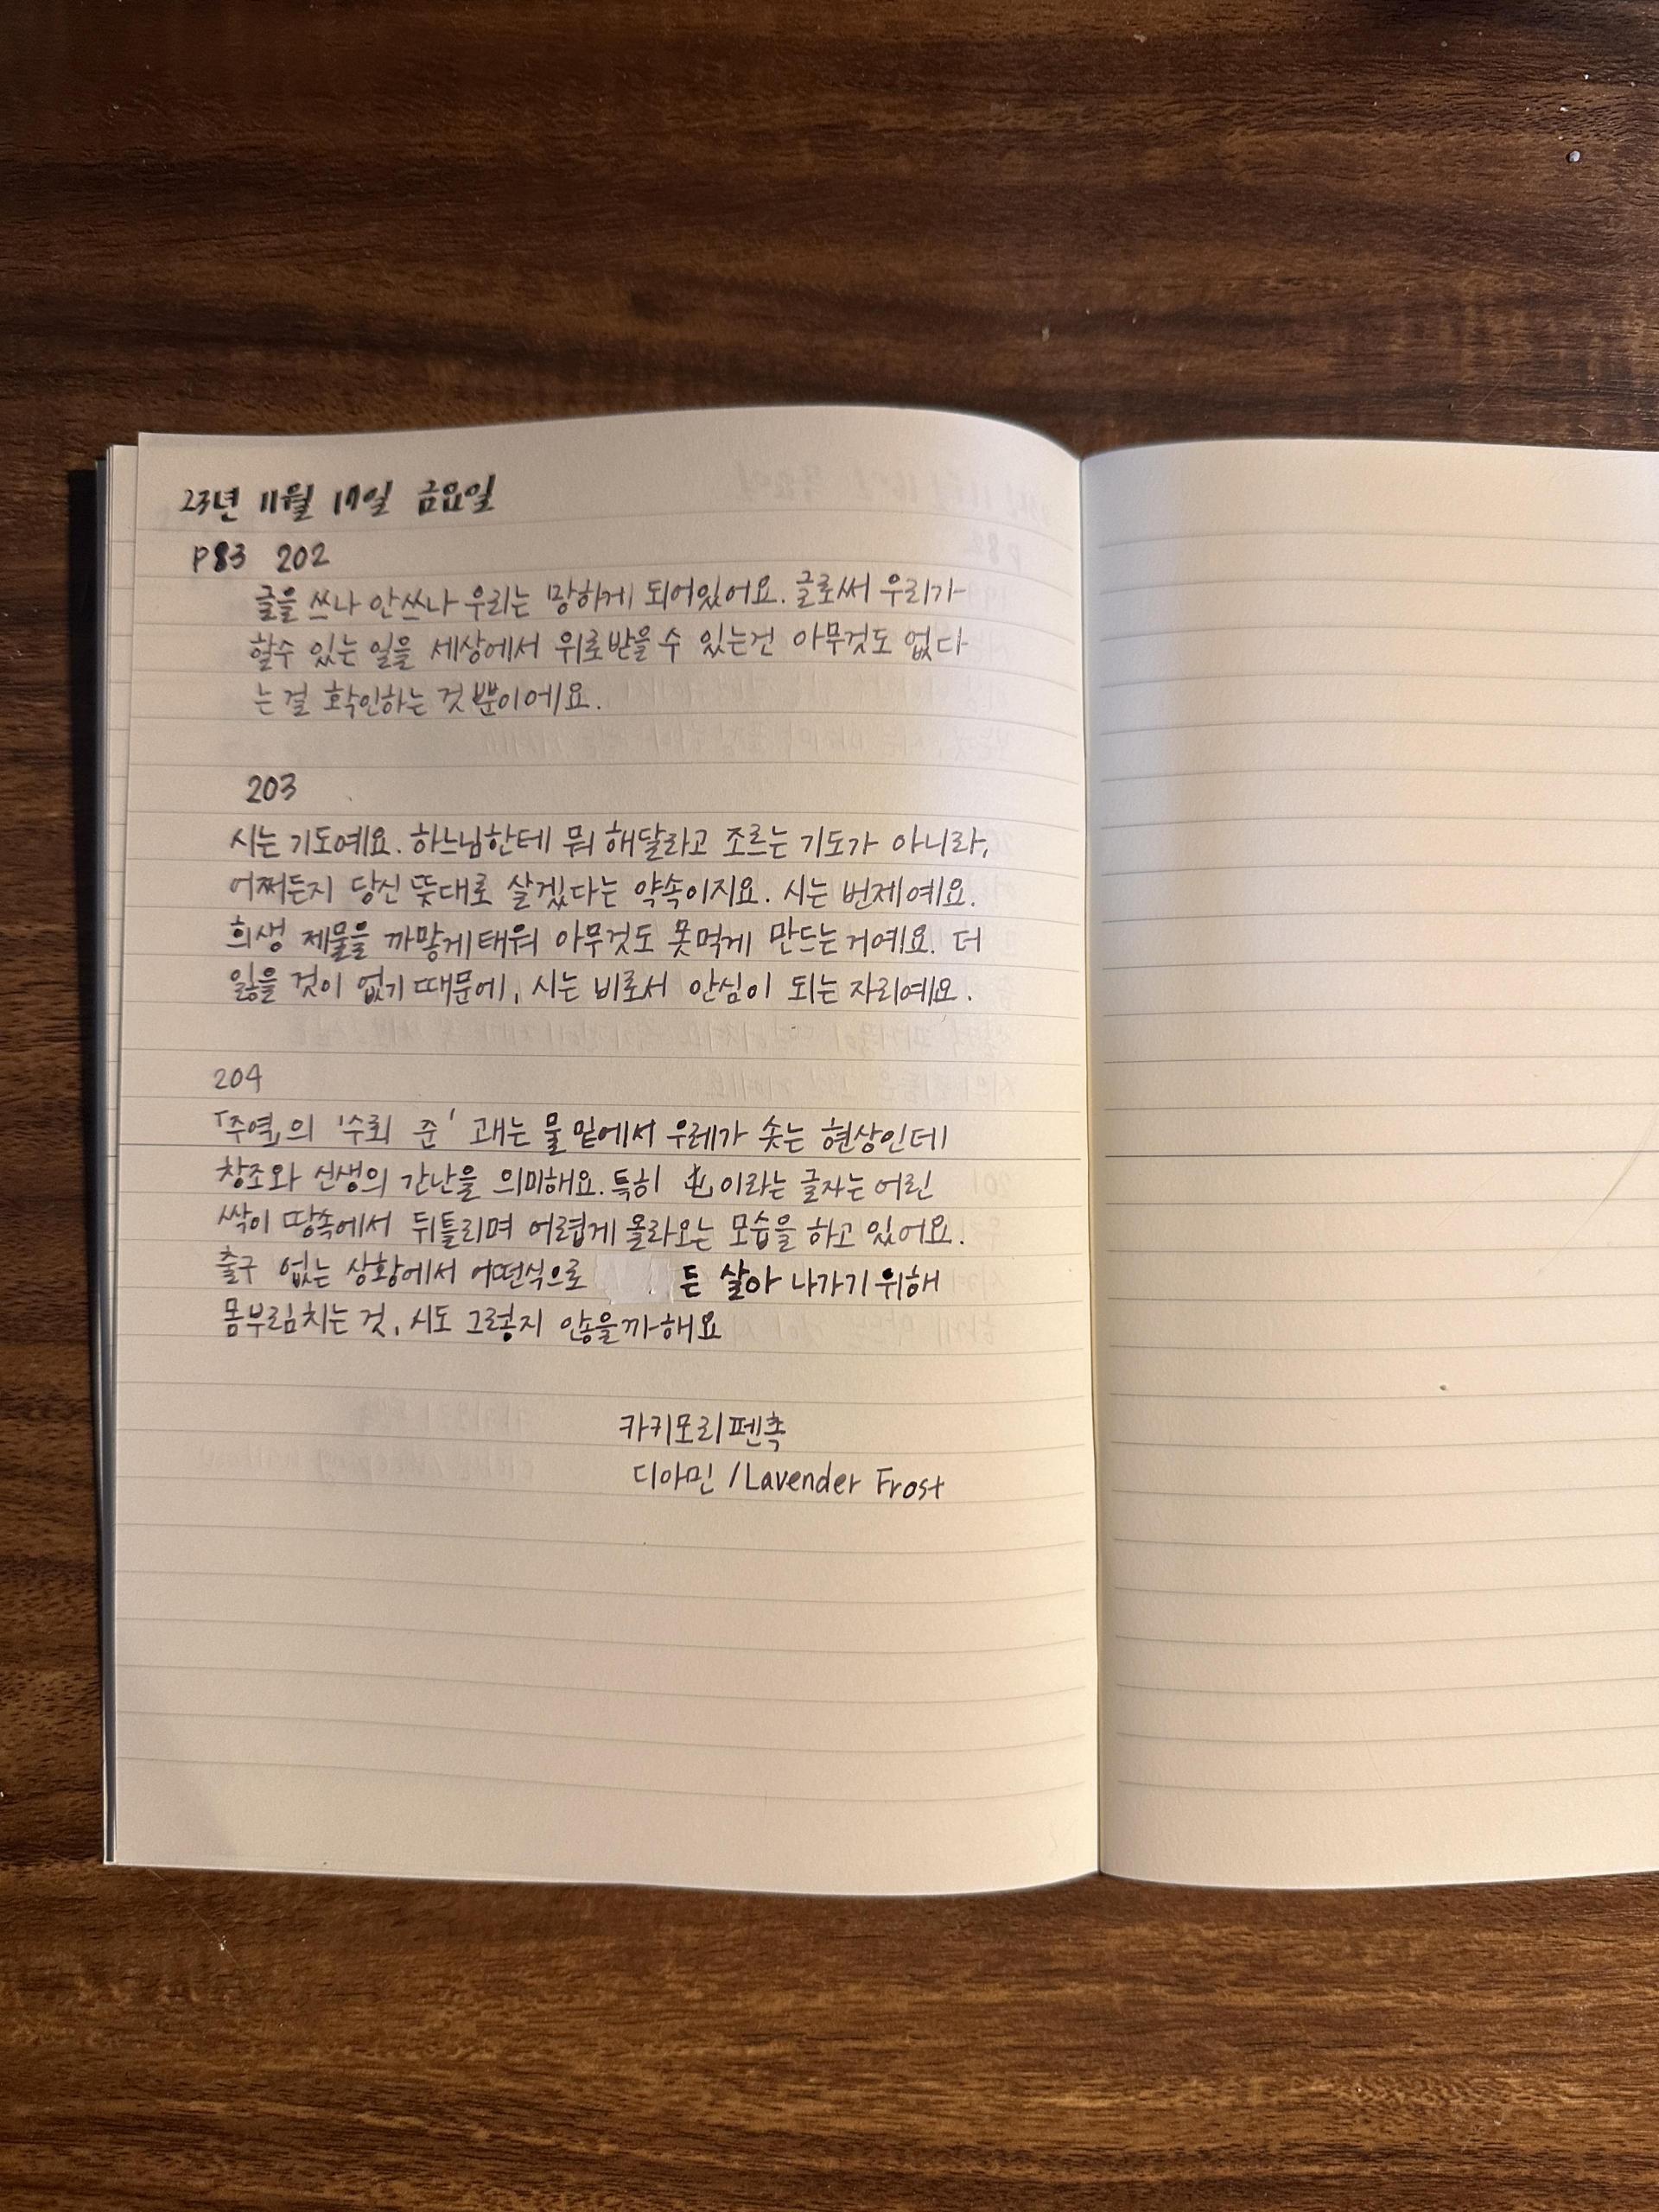 23년 11월 17일 금요일
P83 202
글을 쓰나 안쓰나 우리는 망하게 되어있어요. 글로써 우리가
할수 있는 일을 세상에서 위로받을 수 있는건 아무것도 없다
는 걸 확인하는 것 뿐이에요.
203
시는 기도예요. 하느님한테 뭐 해달라고 조르는 기도가 아니라,
어쩌든지 당신 뜻대로 살겠다는 약속이지요. 시는 번제예요.
희생 제물을 까맣게 태워 아무것도 못먹게 만드는거예요. 더
잃을 것이 없기 때문에, 시는 비로서 안심이 되는 자리예요.
204
「주역」의 '수뢰 준' 괘는 물 밑에서 우레가 솟는 현상인데
창조와 신생의 간난을 의미해요. 특히 屯이라는 글자는 어린
싹이 땅속에서 뒤틀리며 어렵게 올라오는 모습을 하고 있어요.
출구 없는 상황에서 어떤식으로 든 살아 나가기 위해
몸부림치는 것, 시도 그렇지 않을까 해요
카키모리펜촉
디아민 / Lavender Frost